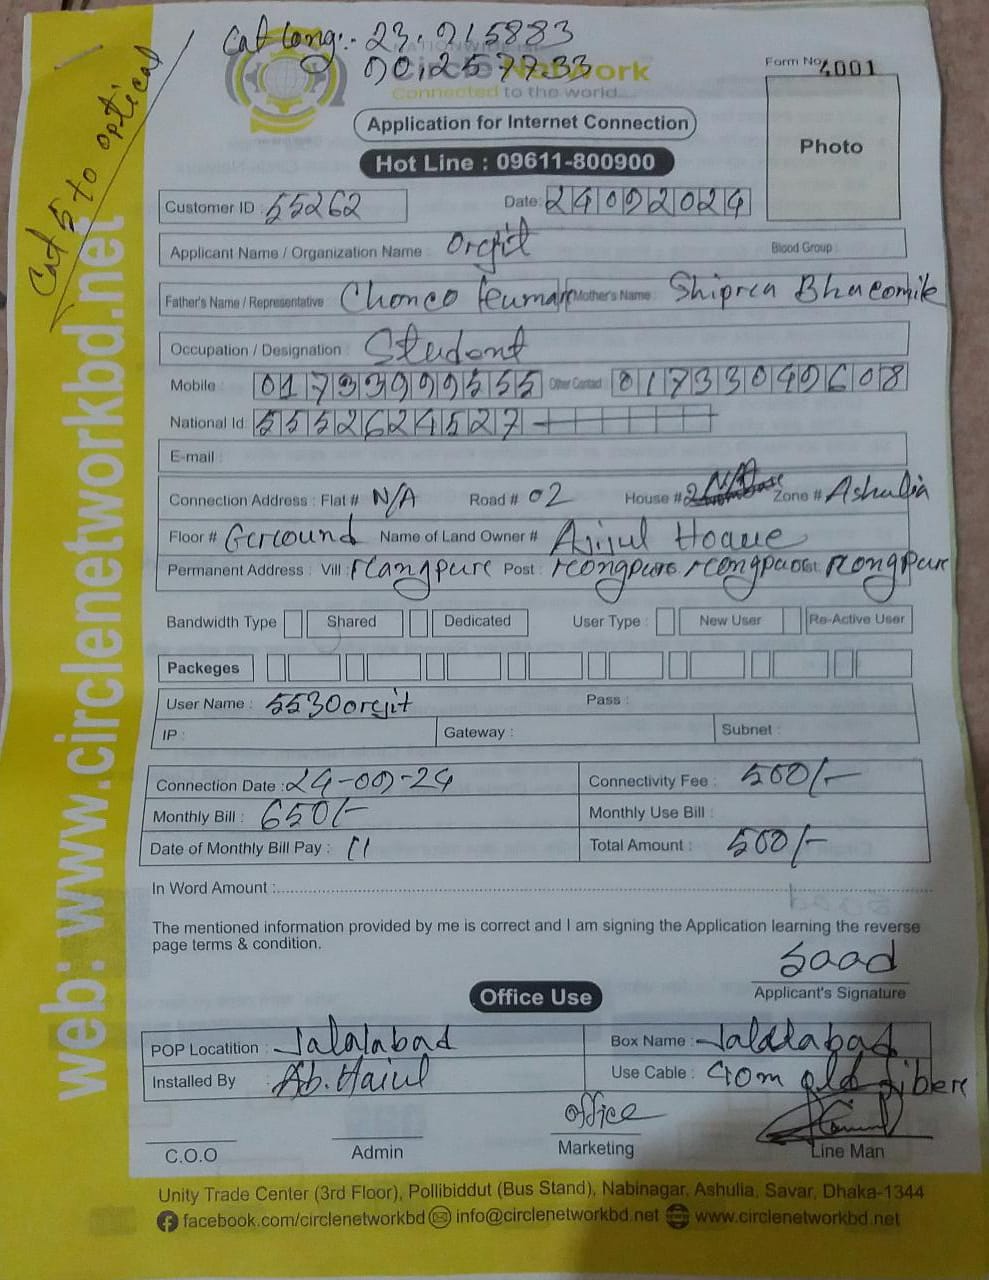 Cat long:- 23.915883
90.257733
Circle Network
Connected to the world...
Cat 5 to optical
Form No 4001
Application for Internet Connection
Photo
Hot Line : 09611-800900
Customer ID : 55262 Date: 24092024
Applicant Name / Organization Name : Orejit Blood Group :
Father's Name / Representative : Chonco Kumar Mother's Name : Shipra Bhacomik
Occupation / Designation : Student
Mobile : 01733999555 Other Contact : 01733049608
National Id 5552624527
E-mail :
Connection Address : Flat # N/A Road # 02 House # N/A Zone # Ashulia
Floor # Gercound Name of Land Owner # Ajijul Hoque
Permanent Address : Vill : Rangpure Post : rongpure rongpure Dist rongpure
Bandwidth Type Shared Dedicated User Type : New User Re-Active User
Packeges
User Name : 5530orejit Pass :
IP : Gateway : Subnet :
Connection Date : 24-09-24 Connectivity Fee : 500/-
Monthly Bill : 650/- Monthly Use Bill :
Date of Monthly Bill Pay : 11 Total Amount : 500/-
In Word Amount :
The mentioned information provided by me is correct and I am signing the Application learning the reverse
page terms & condition.
Saad
Applicant's Signature
Office Use
POP Locatition : Jalalabad Box Name : Jalalabad
Installed By : Ab. Haiul Use Cable : 40m old fibere
office
C.O.O Admin Marketing Line Man
Unity Trade Center (3rd Floor), Pollibiddut (Bus Stand), Nabinagar, Ashulia, Savar, Dhaka-1344
facebook.com/circlenetworkbd info@circlenetworkbd.net www.circlenetworkbd.net
web: www.circlenetworkbd.net